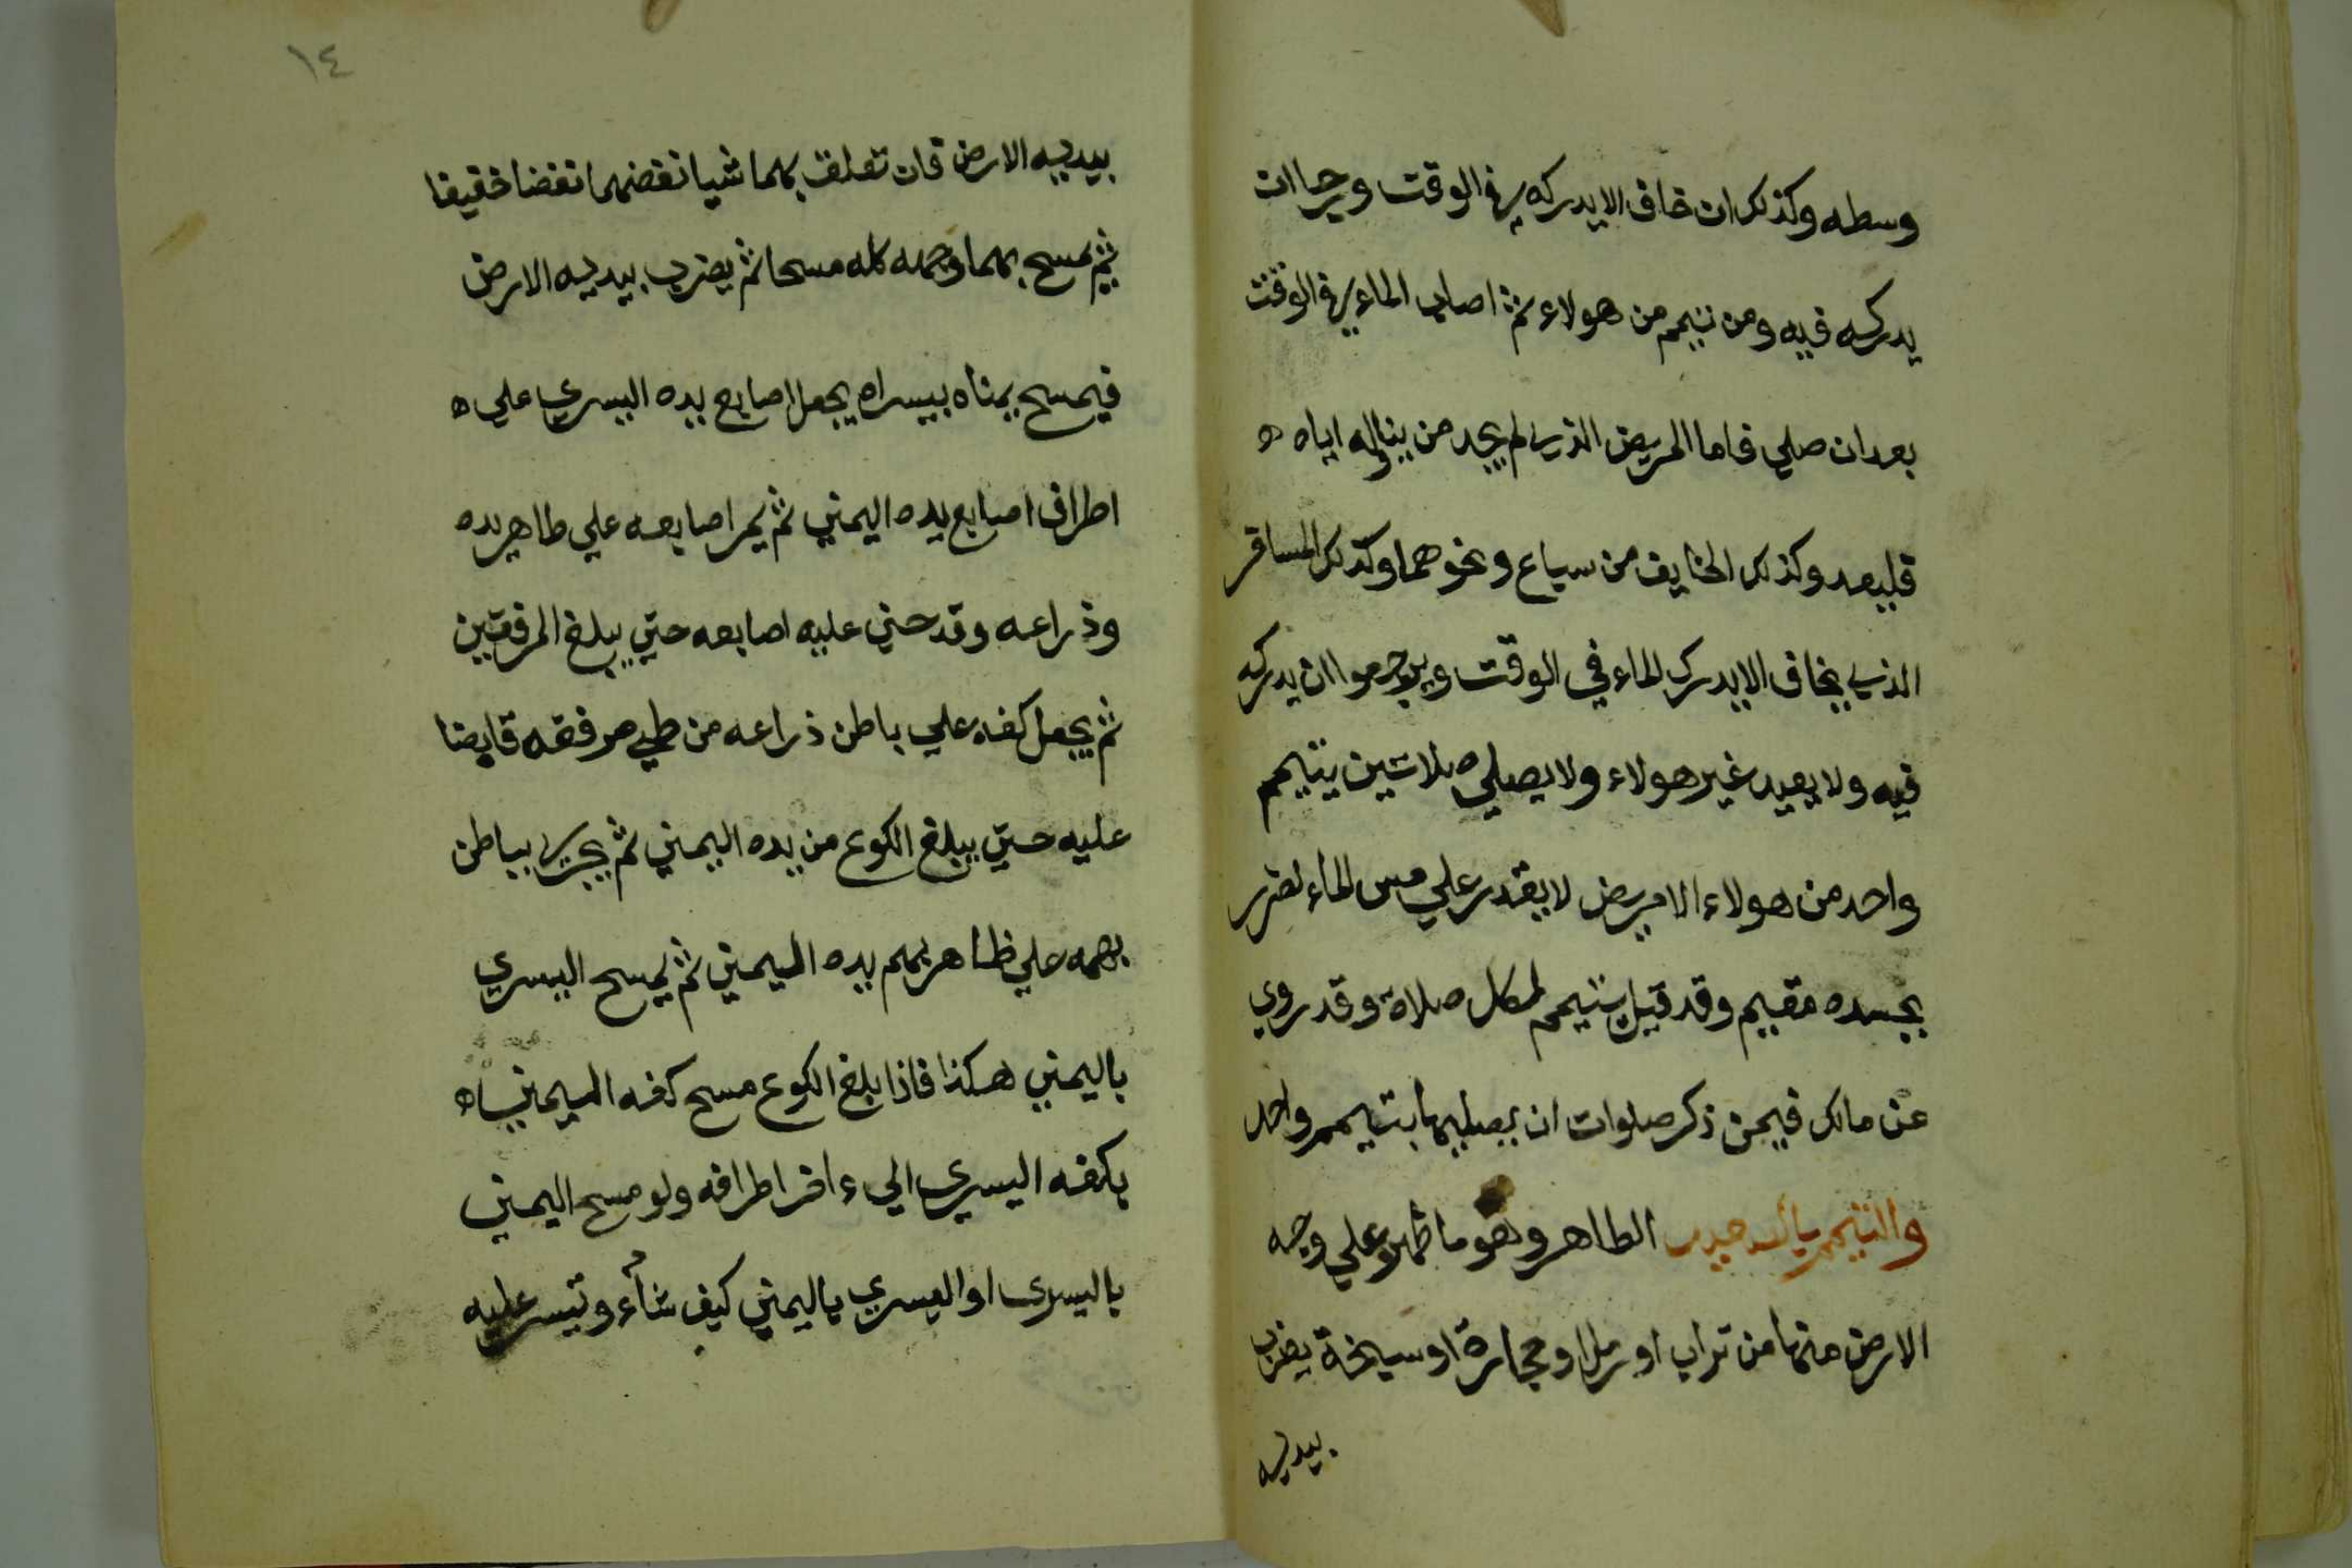 وسطه وكذلك ان خاف الا يدركه في الوقت ورجا ان
يدركه فيه ومن تيمم من هولاء ثم اصاب الماء في الوقت
بعد ان صلي فاما المريض الذي لم يجد من يناوله اياه ه
فليعد وكذلك الخايف من سباع ونحوهما وكذلك المسافر
الذي يخاف الا يدرك الماء في الوقت ويرجوا ان يدركه
فيه ولا يعيد غير هولاء ولا يصلي صلاتين بتيمم
واحد من هولاء الا مريض لا يقدر علي مس الماء لضرر
بجسده مقيم وقد قيل يتيمم لكل صلاة وقد روي
عن مالك فيمن ذكر صلوات ان يصليها بتيمم واحد
والتيمم بالصعيد الطاهر وهو ما ظهر علي وجه
الارض منها من تراب او رمل او حجارة او سبخة يضرب
بيديه
١٤
بيديه الارض فان تعلق بهما شيا نفضهما نفضا خفيفا
ثم يمسح بهما وجهه كله مسحا ثم يضرب بيديه الارض
فيمسح يمناه بيسراه يجعل اصابع يده اليسري علي ه
اطراف اصابع يده اليمني ثم يمر اصابعه علي طاهر يده
وذراعه وقد حني عليه اصابعه حتي يبلغ المرفقين
ثم يجعل كفه علي باطن ذراعه من طي مرفقه قابضا
عليه حتي يبلغ الكوع من يده اليمني ثم يجري بباطن
بهمه علي ظاهر بهم يده اليمني ثم يمسح اليسري
باليمني هكذا فاذا بلغ الكوع مسح كفه اليمني ه
بكفه اليسري الي ءاخر اطرافه ولو مسح اليمني
باليسرى او اليسري باليمني كيف شاء وتيسر عليه